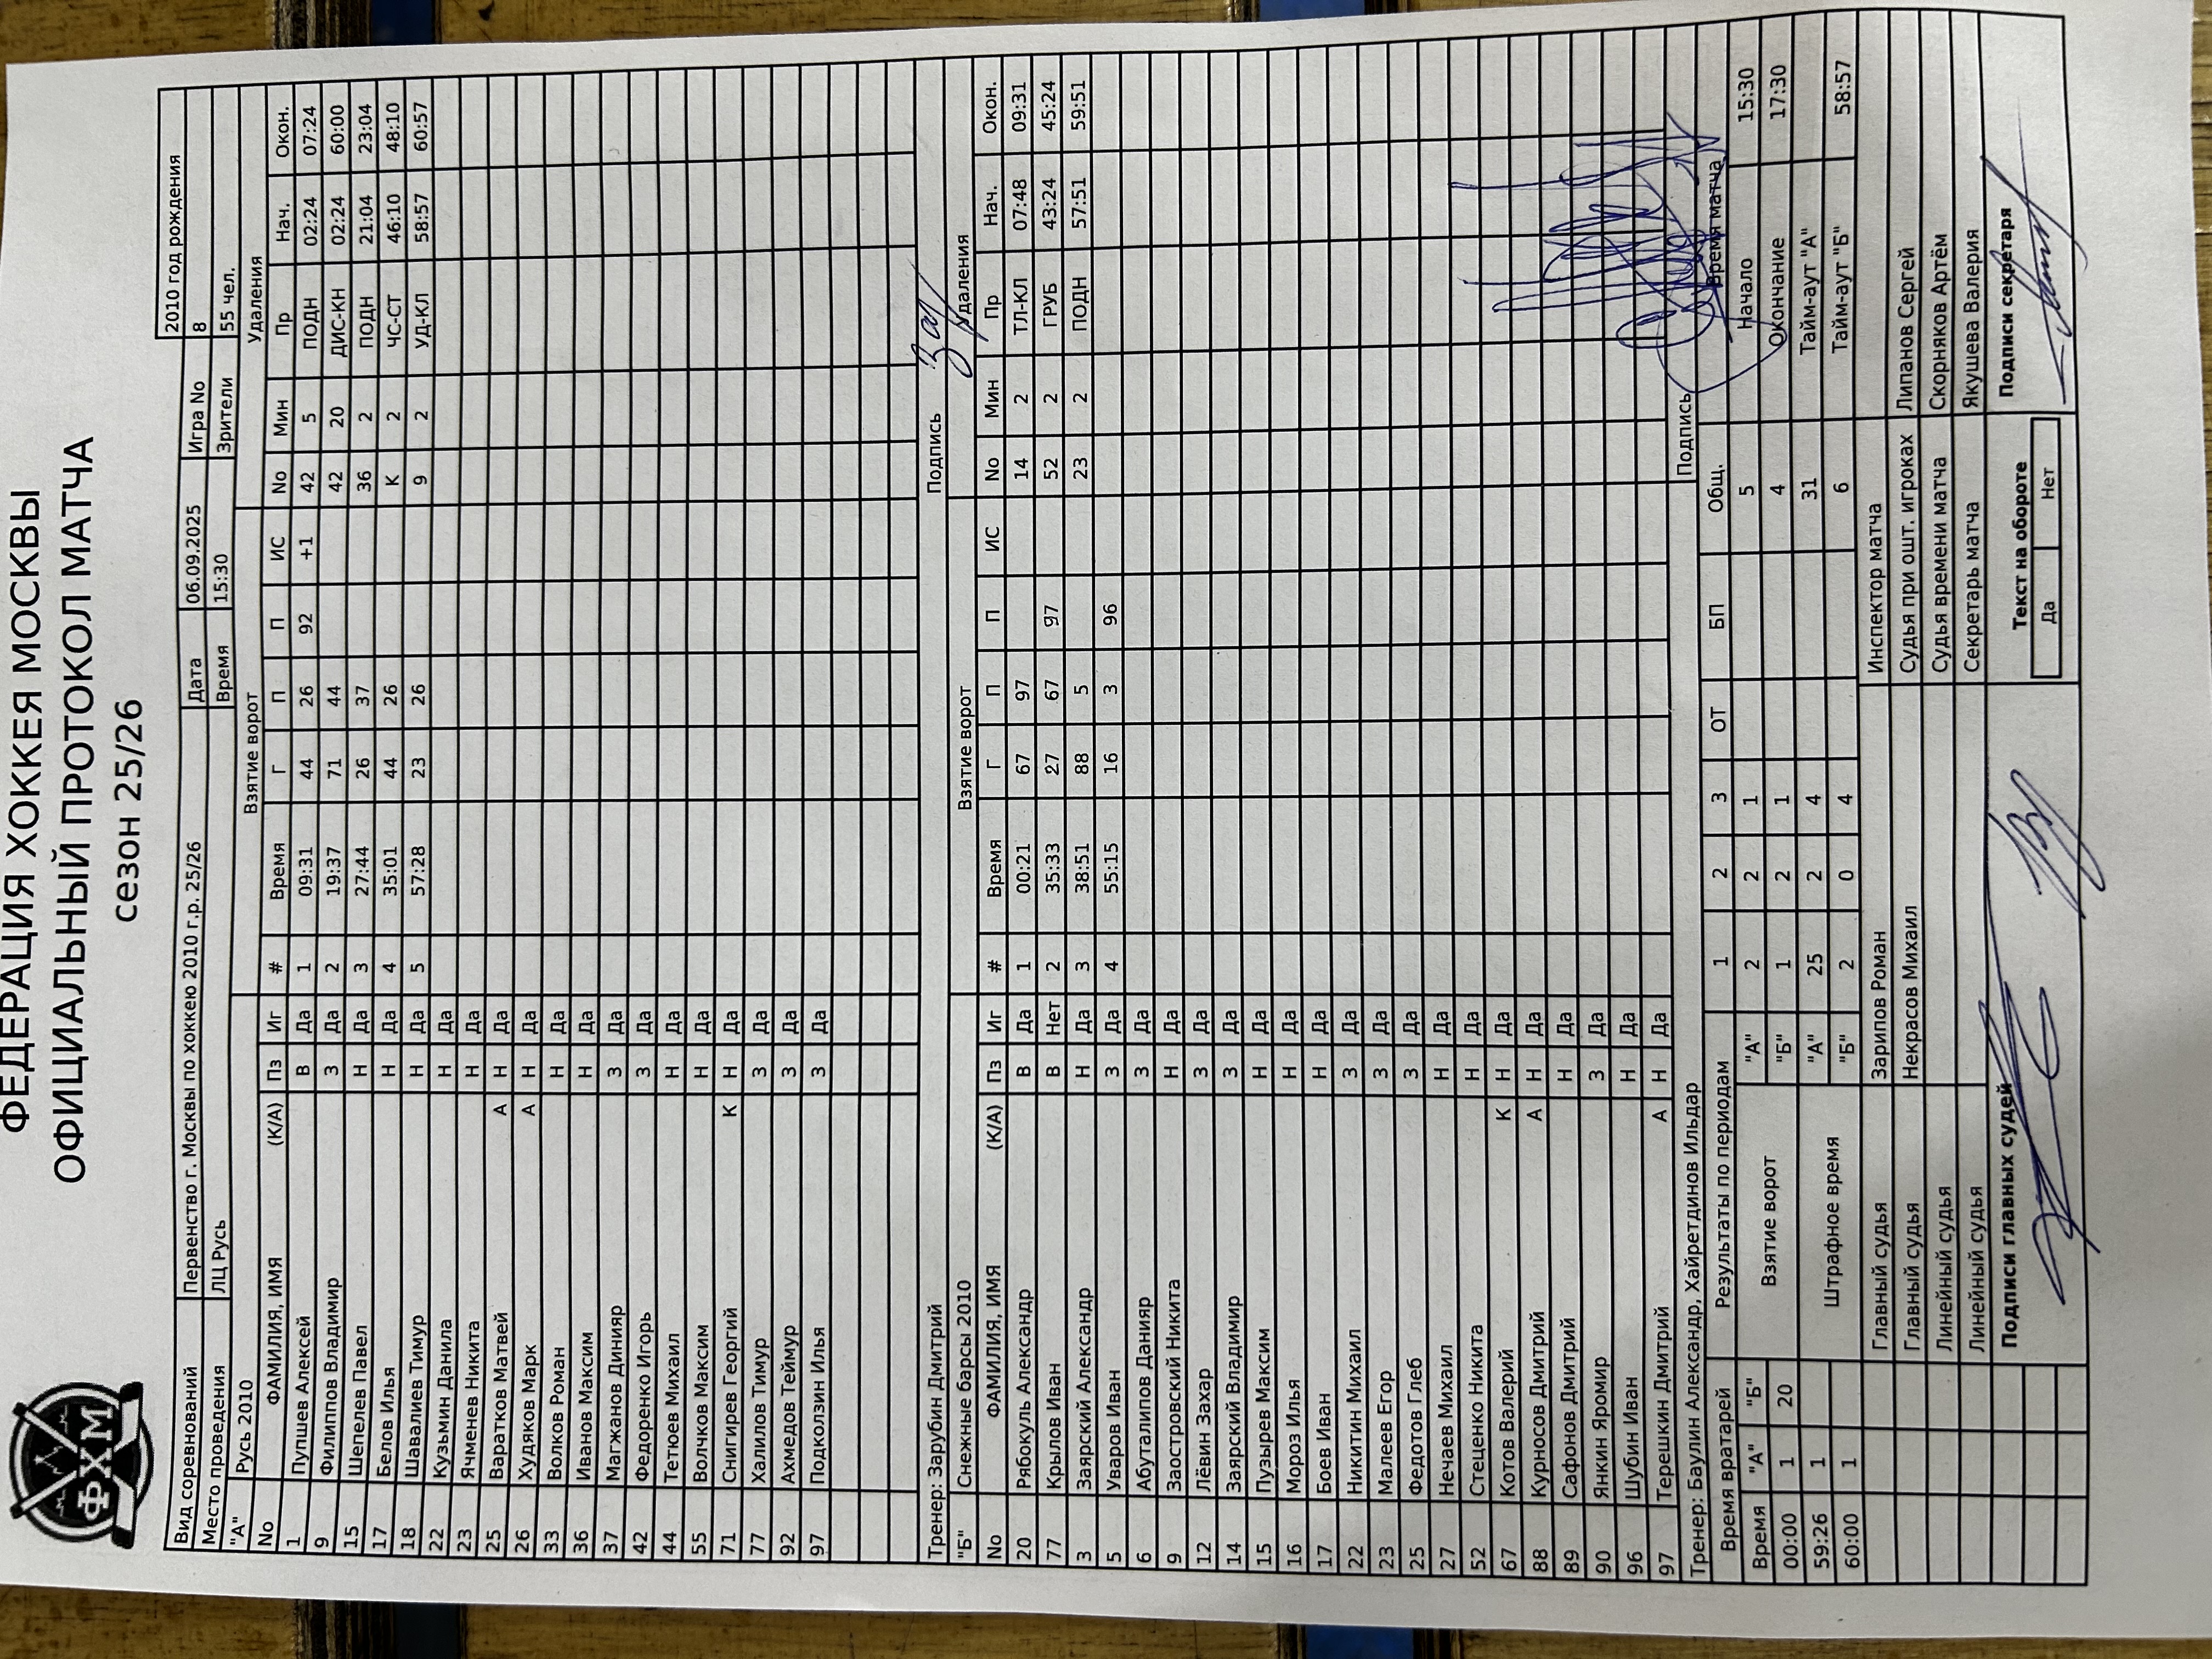 ФХМ
ФЕДЕРАЦИЯ ХОККЕЯ МОСКВЫ
ОФИЦИАЛЬНЫЙ ПРОТОКОЛ МАТЧА
сезон 25/26
Вид соревнований Первенство г. Москвы по хоккею 2010 г.р. 25/26 Дата 06.09.2025 Игра No 8 2010 год рождения
Место проведения ЛЦ Русь Время 15:30 Зрители 55 чел.
"А" Русь 2010 Взятие ворот Удаления
No ФАМИЛИЯ, ИМЯ (К/А) Пз Иг # Время Г П П ИС No Мин Пр Нач. Окон.
1 Пупшев Алексей В Да 1 09:31 44 26 92 +1 42 5 ПОДН 02:24 07:24
9 Филиппов Владимир З Да 2 19:37 71 44 42 20 ДИС-КН 02:24 60:00
15 Шепелев Павел Н Да 3 27:44 26 37 36 2 ПОДН 21:04 23:04
17 Белов Илья Н Да 4 35:01 44 26 К 2 ЧС-СТ 46:10 48:10
18 Шавалиев Тимур Н Да 5 57:28 23 26 9 2 УД-КЛ 58:57 60:57
22 Кузьмин Данила Н Да
23 Ячменев Никита Н Да
25 Варатков Матвей А Н Да
26 Худяков Марк А Н Да
33 Волков Роман Н Да
36 Иванов Максим Н Да
37 Магжанов Динияр З Да
42 Федоренко Игорь З Да
44 Тетюев Михаил Н Да
55 Волчков Максим Н Да
71 Снигирев Георгий К Н Да
77 Халилов Тимур З Да
92 Ахмедов Теймур З Да
97 Подколзин Илья З Да
Тренер: Зарубин Дмитрий Подпись
"Б" Снежные барсы 2010 Взятие ворот Удаления
No ФАМИЛИЯ, ИМЯ (К/А) Пз Иг # Время Г П П ИС No Мин Пр Нач. Окон.
20 Рябокуль Александр В Да 1 00:21 67 97 14 2 ТЛ-КЛ 07:48 09:31
77 Крылов Иван В Нет 2 35:33 27 67 97 52 2 ГРУБ 43:24 45:24
3 Заярский Александр Н Да 3 38:51 88 5 23 2 ПОДН 57:51 59:51
5 Уваров Иван З Да 4 55:15 16 3 96
6 Абуталипов Данияр З Да
9 Заостровский Никита Н Да
12 Лёвин Захар З Да
14 Заярский Владимир З Да
15 Пузырев Максим Н Да
16 Мороз Илья Н Да
17 Боев Иван Н Да
22 Никитин Михаил З Да
23 Малеев Егор З Да
25 Федотов Глеб З Да
27 Нечаев Михаил Н Да
52 Стеценко Никита Н Да
67 Котов Валерий К Н Да
88 Курносов Дмитрий А Н Да
89 Сафонов Дмитрий Н Да
90 Янкин Яромир З Да
96 Шубин Иван Н Да
97 Терешкин Дмитрий А Н Да
Тренер: Баулин Александр, Хайретдинов Ильдар Подпись
Время вратарей Результаты по периодам 1 2 3 ОТ БП Общ. Время матча
Время "А" "Б" Взятие ворот "А" 2 2 1 5 Начало 15:30
00:00 1 20 "Б" 1 2 1 4 Окончание 17:30
59:26 1 Штрафное время "А" 25 2 4 31 Тайм-аут "А"
60:00 1 "Б" 2 0 4 6 Тайм-аут "Б" 58:57
Главный судья Зарипов Роман Инспектор матча
Главный судья Некрасов Михаил Судья при ошт. игроках Липанов Сергей
Линейный судья Судья времени матча Скорняков Артём
Линейный судья Секретарь матча Якушева Валерия
Подписи главных судей Текст на обороте Подписи секретаря
Да Нет